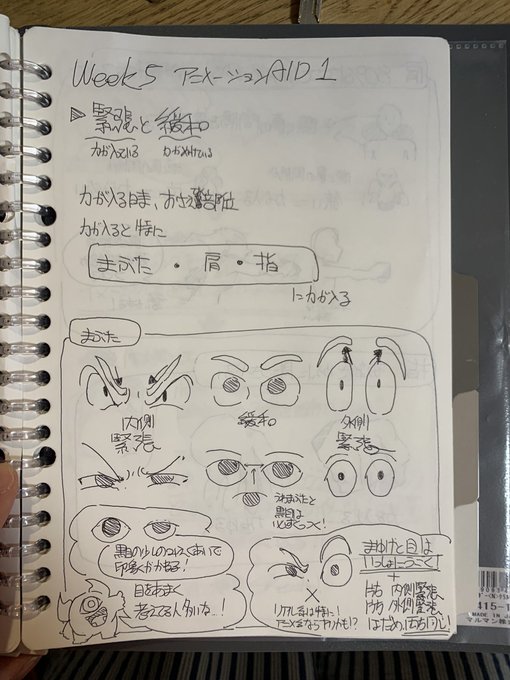 Week5 アニメーションAID1
▷緊張と緩和
力が入っている 力がぬけている
力が入る時は、おさえる箇所
力が入ると特に
まぶた・肩・指
に力が入る
まぶた
内側
緊張
緩和
外側
緊張
うわまぶたと
黒目は
いつもくっつく!
黒目の少しのつぶれぐあいで
印象がかわる!
目をあまく
考えてる人多いな..!
×
リアル系は特に!
アニメならアリかも!?
まゆげと目は
いっしょにうごく
+
左 内側 緊張
右 外側 緊張
はだめ、両方同じ!
MADE IN J
マルマン株